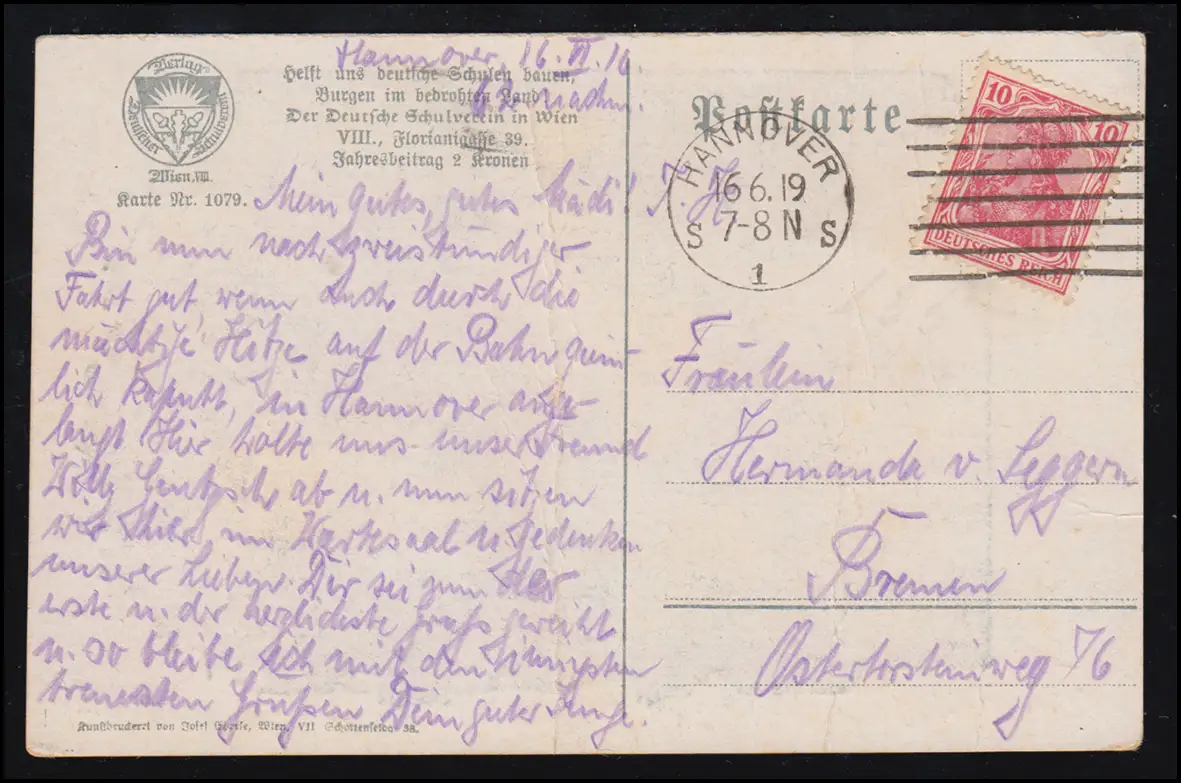 Verlag
Deutscher Schulverein
Wien, VIII.
Karte Nr. 1079.
Helft uns deutsche Schulen bauen,
Burgen im bedrohten Land!
Der Deutsche Schulverein in Wien
VIII., Florianigasse 39.
Jahresbeitrag 2 Kronen
Hannover, 16. VI. 19.
Mein gutes, gutes Mädi!
Bin nun nach zweistündiger
Fahrt gut, wenn auch durch die
mächtige Hitze auf der Bahn
lich kaputt, in Hannover ange-
langt. Hier holte uns unser Freund
Willy ab u. nun sitzen
wir hier im Wartesaal u. gedenken
unserer Lieben. Dir sei nun der
erste u. der Gruß geweiht
u. so bleibe ich mit den innigsten
treuesten Grüßen Dein guter Junge.
Kunstdruckerei von Josef Eberle, Wien, VII Schottenfeldg. 38.
Postkarte
HANNOVER
16.6.19
7-8 N
S S
1
10 10
DEUTSCHES REICH
Fräulein
Hermande v. Seggern
Bremen
Ostertorsteinweg 76